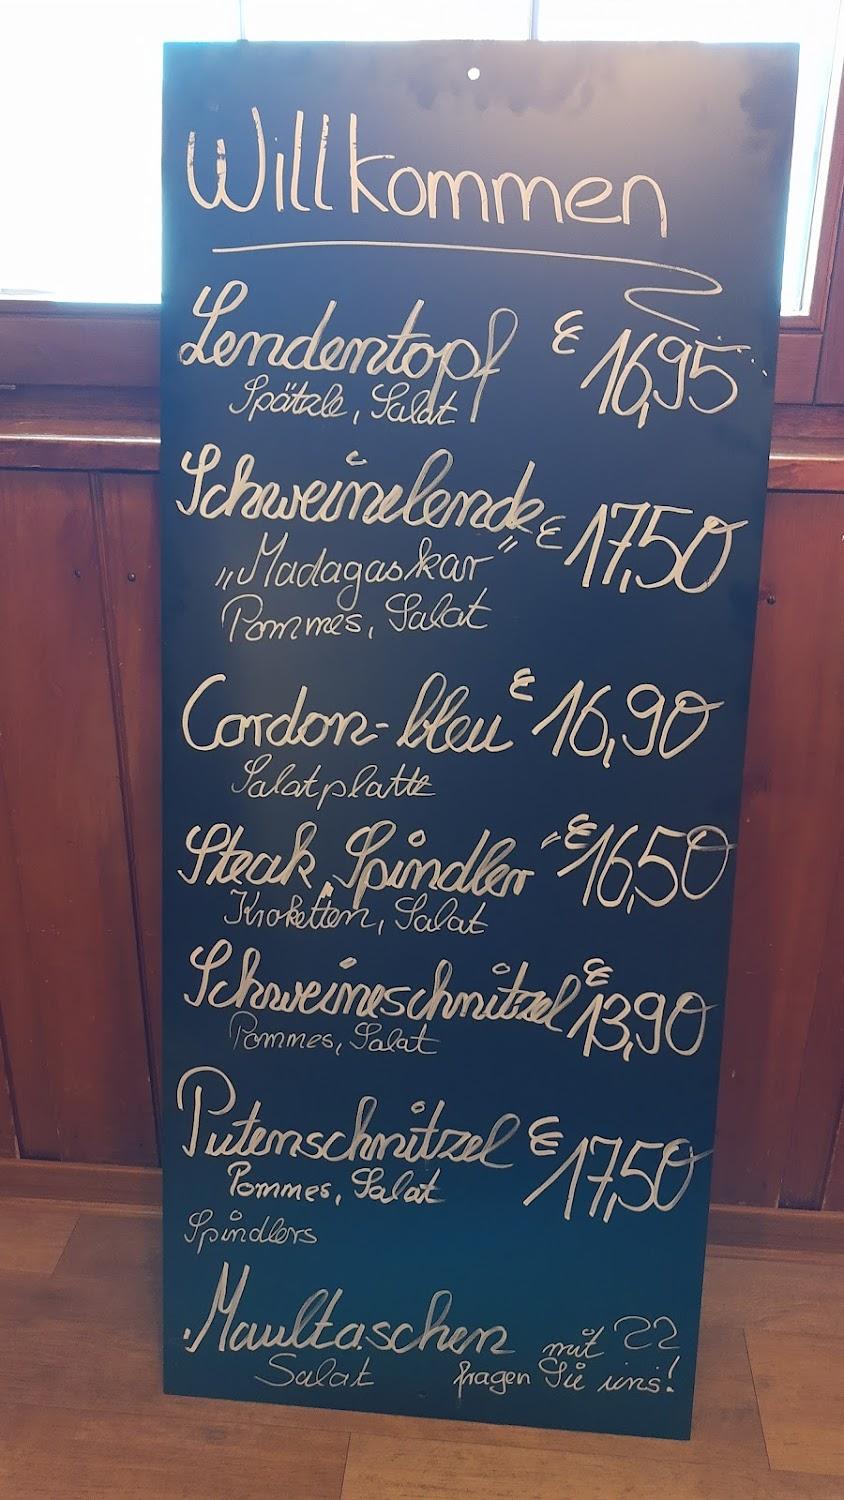 Willkommen
Lendentopf € 16,95
Spätzle, Salat
Schweinelende € 17,50
„Madagaskar"
Pommes, Salat
Cordon-bleu € 16,90
Salatplatte
Steak „Spindler" € 16,50
Kroketten, Salat
Schweineschnitzel € 13,90
Pommes, Salat
Putenschnitzel € 17,50
Pommes, Salat
Spindlers
Maultaschen mit ??
Salat fragen Sie uns!